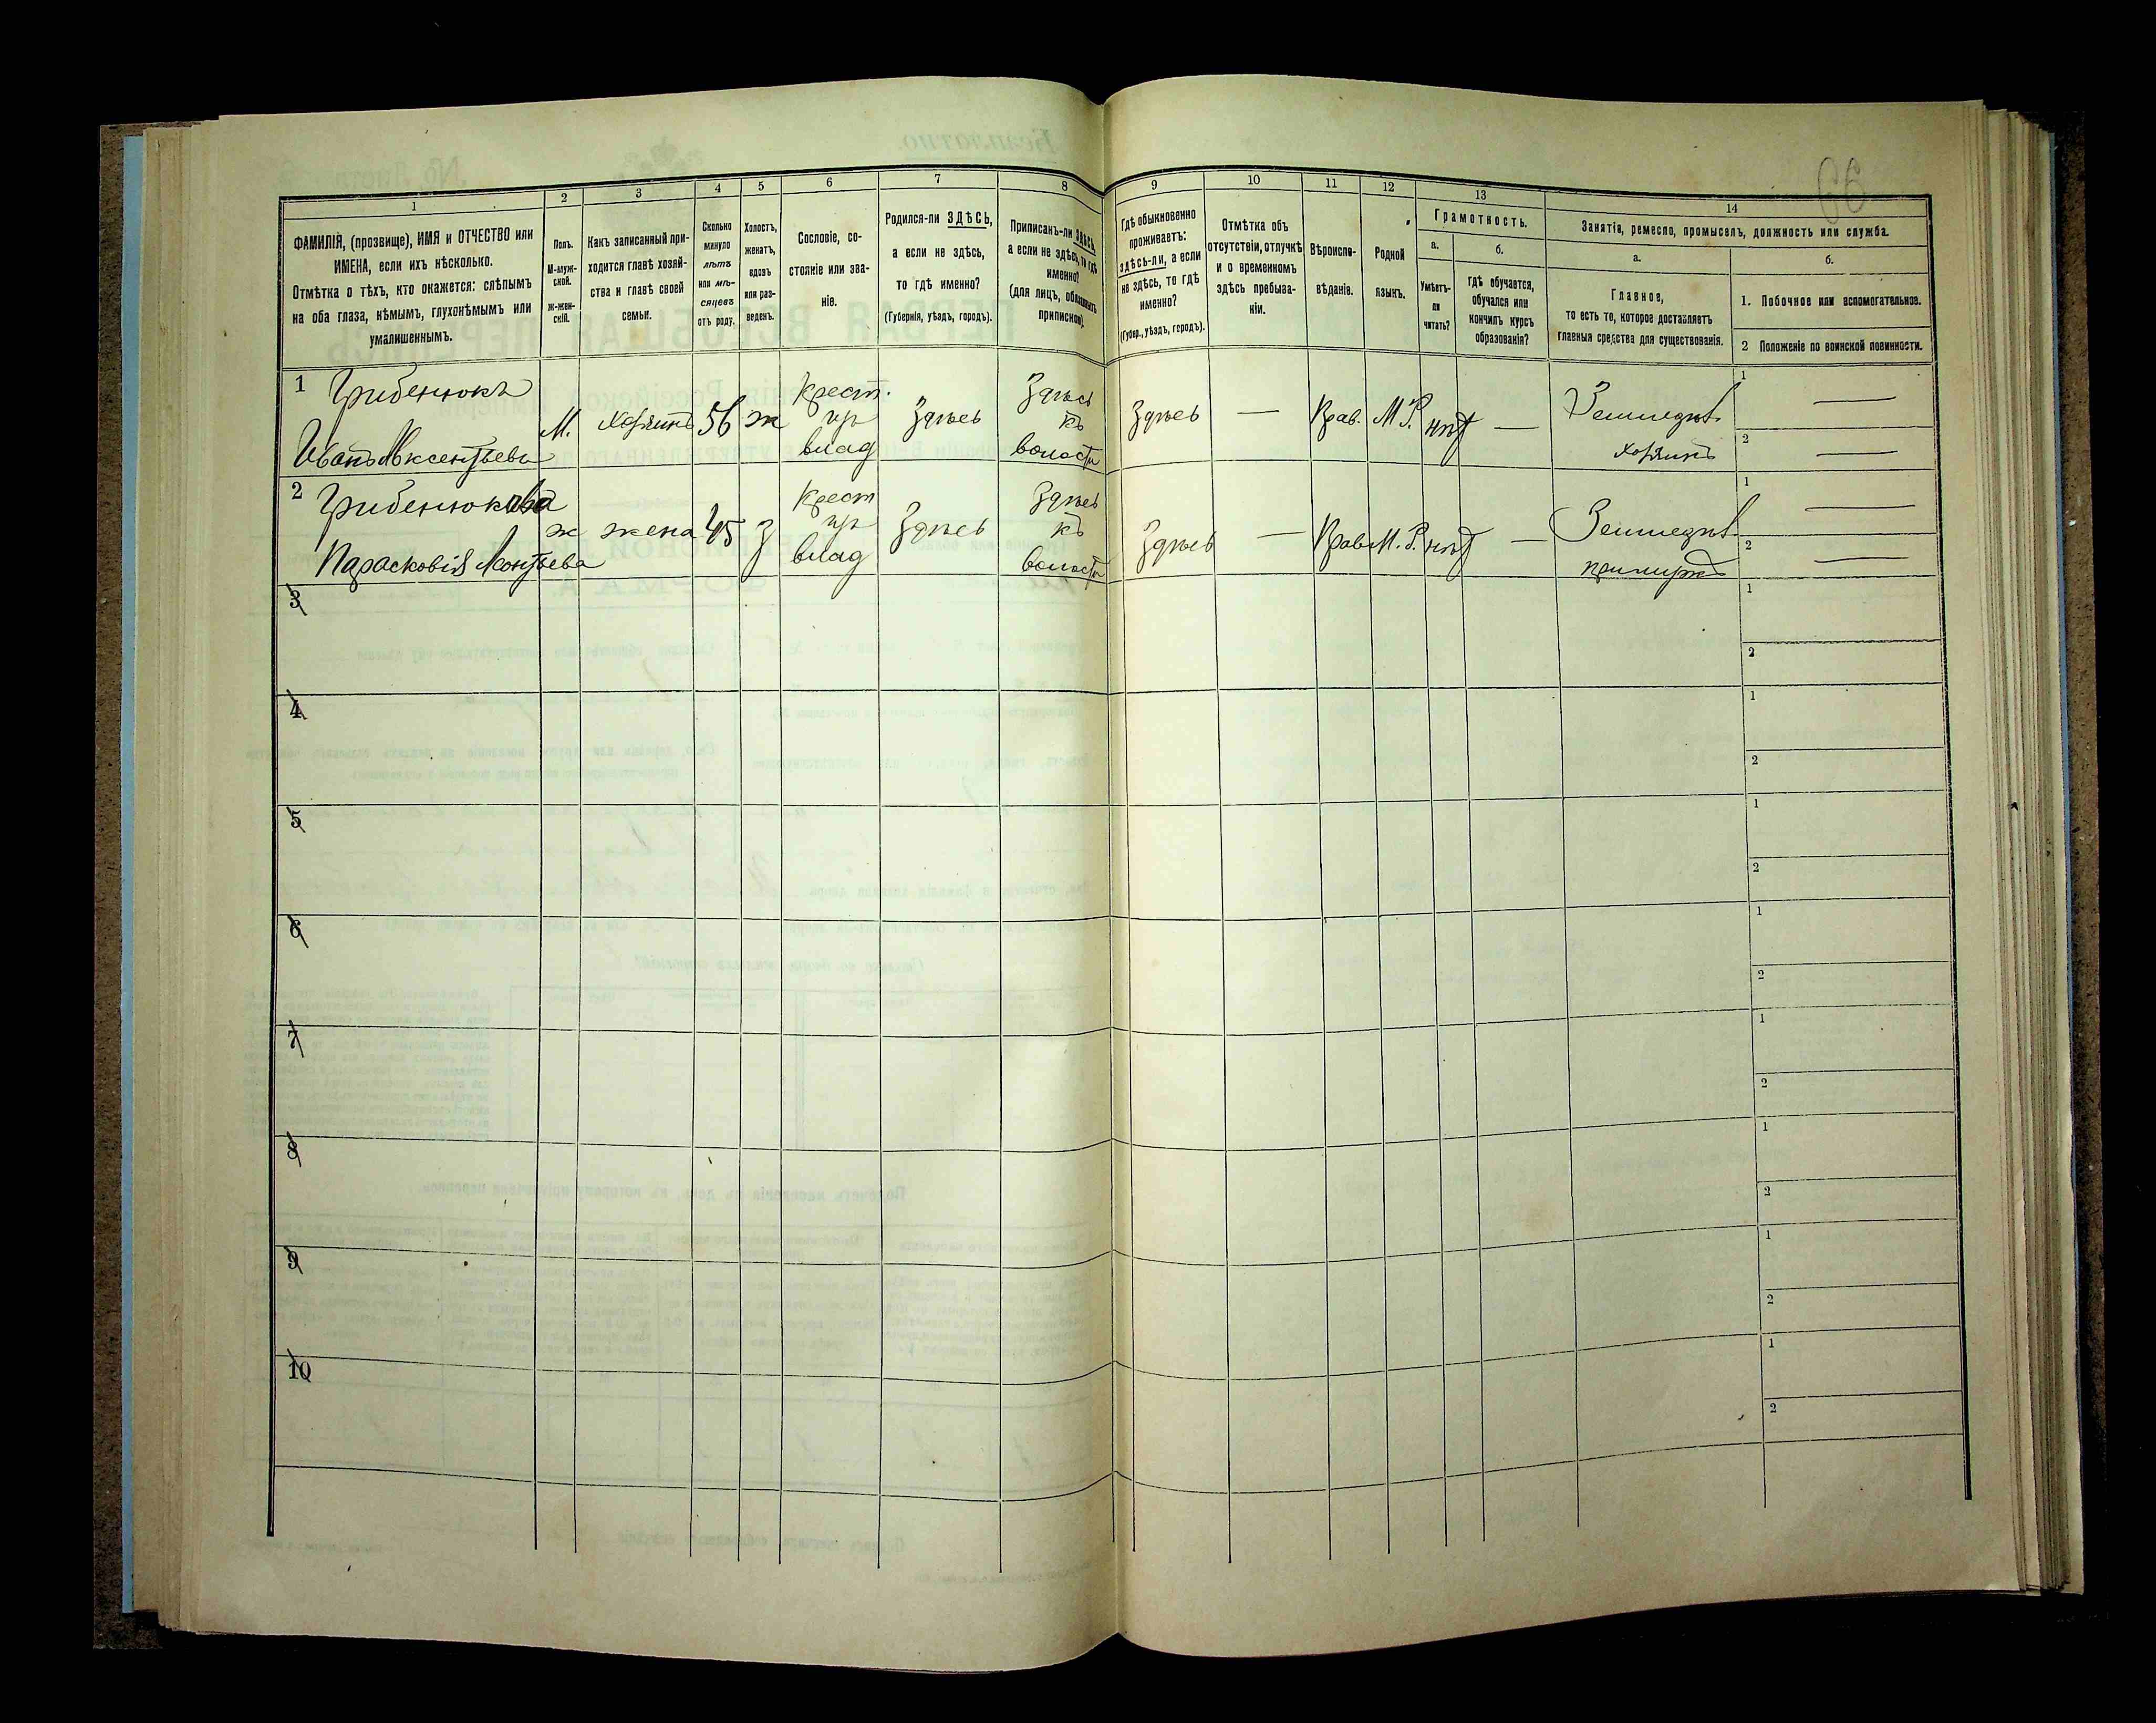 66
1
2
3
4
5
6
7
8
9
10
11
12
13
14
ФАМИЛІЯ, (прозвище), ИМЯ и ОТЧЕСТВО или
ИМЕНА, если ихъ нѣсколько.
Отмѣтка о тѣхъ, кто окажется: слѣпымъ
на оба глаза, нѣмымъ, глухонѣмымъ или
умалишеннымъ.
Полъ.
М-муж-
ской.
Ж-жен-
скій.
Какъ записанный при-
ходится главѣ хозяй-
ства и главѣ своей
семьи.
Сколько
минуло
лѣтъ
или мѣ-
сяцевъ
отъ роду.
Холостъ,
женатъ,
вдовъ
или раз-
веденъ.
Сословіе, со-
стояніе или зва-
ніе.
Родился-ли ЗДѢСЬ,
а если не здѣсь,
то гдѣ именно?
(Губернія, уѣздъ, городъ).
Приписанъ-ли ЗДѢСЬ,
а если не здѣсь, то гдѣ
именно?
(для лицъ, обязанныхъ
припискою)
Гдѣ обыкновенно
проживаетъ:
здѣсь-ли, а если
не здѣсь, то гдѣ
именно?
(Губер., уѣздъ, городъ).
Отмѣтка объ
отсутствіи, отлучкѣ
и о временномъ
здѣсь пребыва-
ніи.
Вѣроиспо-
вѣданіе.
Родной
языкъ.
Грамотность.
а.
Умѣетъ-
ли
читать?
б.
Гдѣ обучается,
обучался или
кончилъ курсъ
образованія?
Занятіе, ремесло, промыселъ, должность или служба.
а.
Главное,
то есть то, которое доставляетъ
главныя средства для существованія.
б.
1. Побочное или вспомогательное.
2 Положеніе по воинской повинности.
1 Грибенюкъ
Иванъ Аксентьевъ
М.
хозяинъ
56
ж
Крест.
изъ
влад
Здѣсь
Здѣсь
къ
волости
Здѣсь
—
Прав.
М Р.
нѣт
—
Земледѣл.
хозяинъ
1 —
2 —
2 Грибенюкова
Парасковія Леонтьева
ж
жена
45
З
Крест
изъ
влад
Здѣсь
Здѣсь
къ
волости
Здѣсь
—
Прав
М. Р.
нѣт
—
Земледѣл.
1 —
2 —
3
1
2
4
1
2
5
1
2
6
1
2
7
1
2
8
1
2
9
1
2
10
1
2